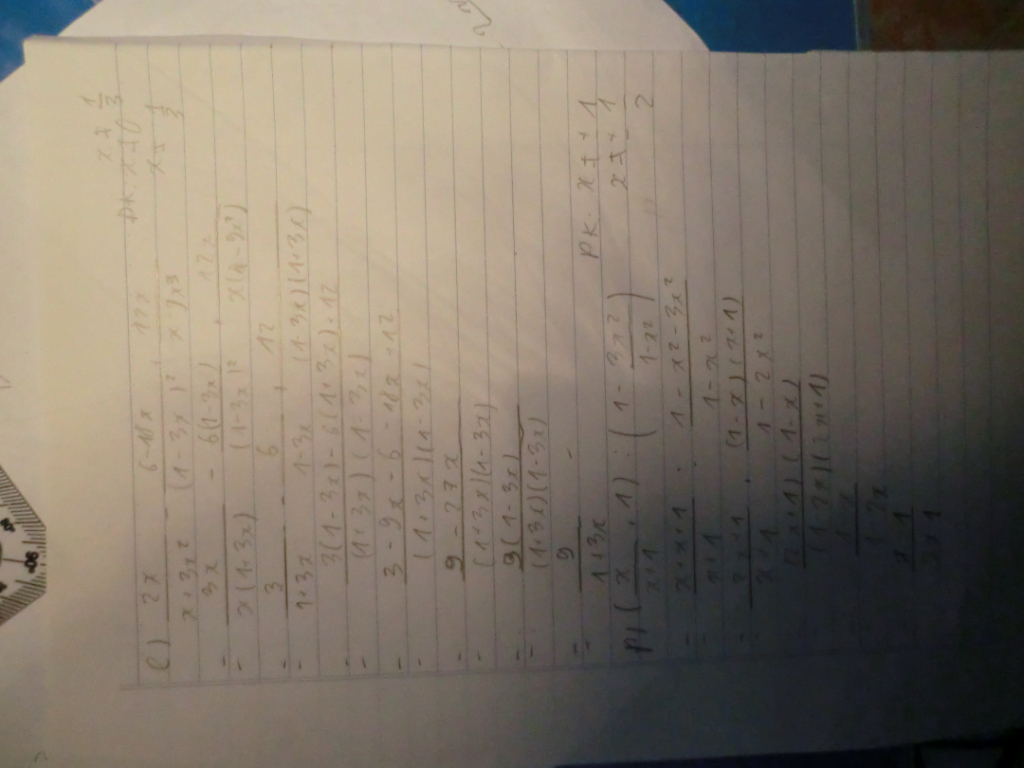 e) 2x/(x+3x²) - (6-18x)/(1-3x)² + 12x/(x-9x³) ĐK: x ≠ 0
x ≠ 1/3
x ≠ -1/3
= 3x/(x(1+3x)) - 6(1-3x)/(1-3x)² + 12x/(x(1-9x²))
= 3/(1+3x) - 6/(1-3x) + 12/((1-3x)(1+3x))
= (3(1-3x)-6(1+3x)+12)/((1+3x)(1-3x))
= (3-9x-6-18x+12)/((1+3x)(1-3x))
= (9-27x)/((1+3x)(1-3x))
= 9(1-3x)/((1+3x)(1-3x))
= 9/(1+3x)
f) (x/(x+1) + 1) : (1 - 3x²/(1-x²)) ĐK: x ≠ ± 1
x ≠ ± 1/2
= (x+x+1)/(x+1) : (1-x²-3x²)/(1-x²)
= (2x+1)/(x+1) . (1-x)(x+1)/(1-2x²)
= (2x+1)(1-x)/((1-2x)(2x+1))
= (1-x)/(1-2x)